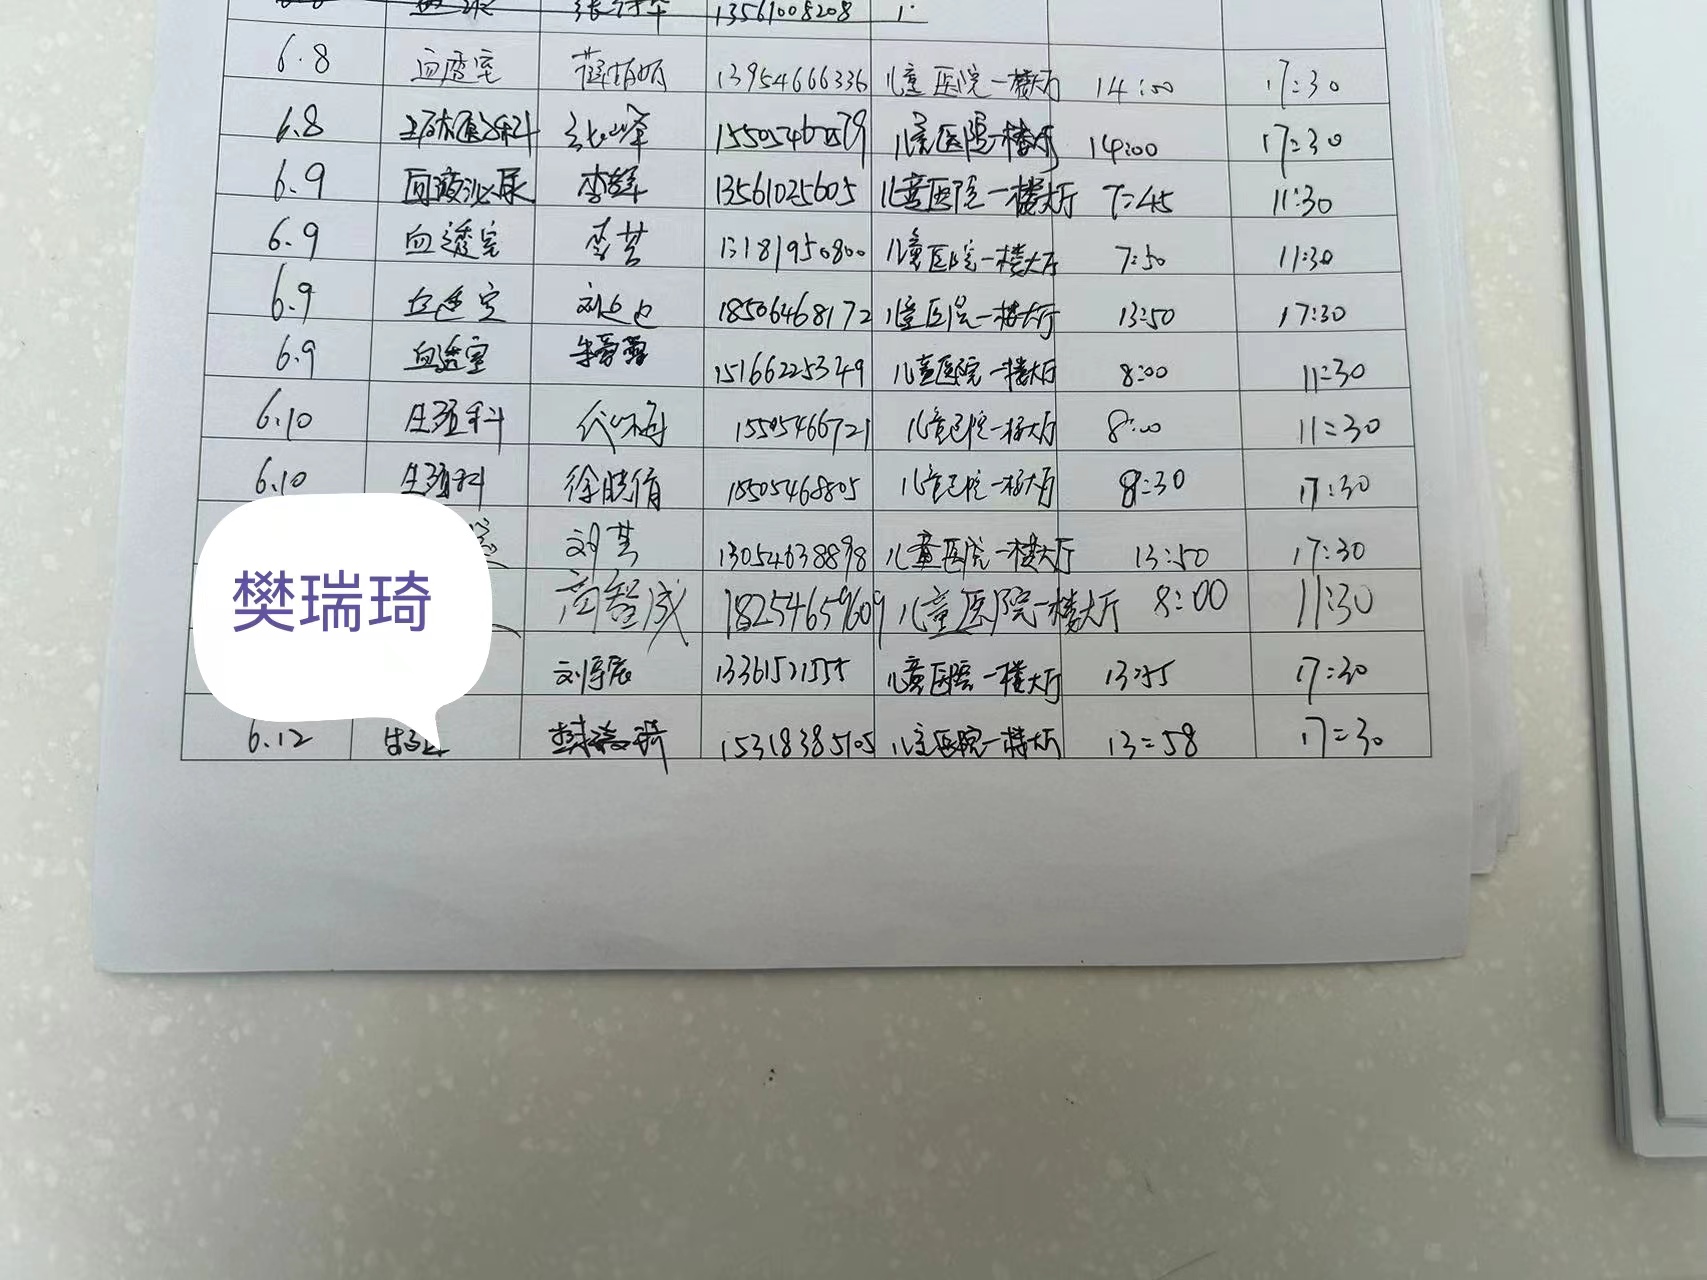 13561008208
6.8 血透室 13954666336 儿童医院一楼大厅 14:00 17:30
6.8 张峰 15505460579 儿童医院一楼大厅 14:00 17:30
6.9 回液泌尿 李辉 13561025605 儿童医院一楼大厅 7:45 11:30
6.9 血透室 李芸 13181950800 儿童医院一楼大厅 7:50 11:30
6.9 血透室 18506468172 儿童医院一楼大厅 13:50 17:30
6.9 血透室 15166225349 儿童医院一楼大厅 8:00 11:30
6.10 生殖科 代咏梅 15505466721 儿童医院一楼大厅 8:00 11:30
6.10 生殖科 徐晓倩 18505468805 儿童医院一楼大厅 8:30 17:30
刘芸 13054638898 儿童医院一楼大厅 13:50 17:30
商智成 18254659609 儿童医院一楼大厅 8:00 11:30
樊瑞琦
刘宇辰 13361521555 儿童医院一楼大厅 13:55 17:30
6.12 樊瑞琦 15318385105 儿童医院一楼大厅 13:58 17:30